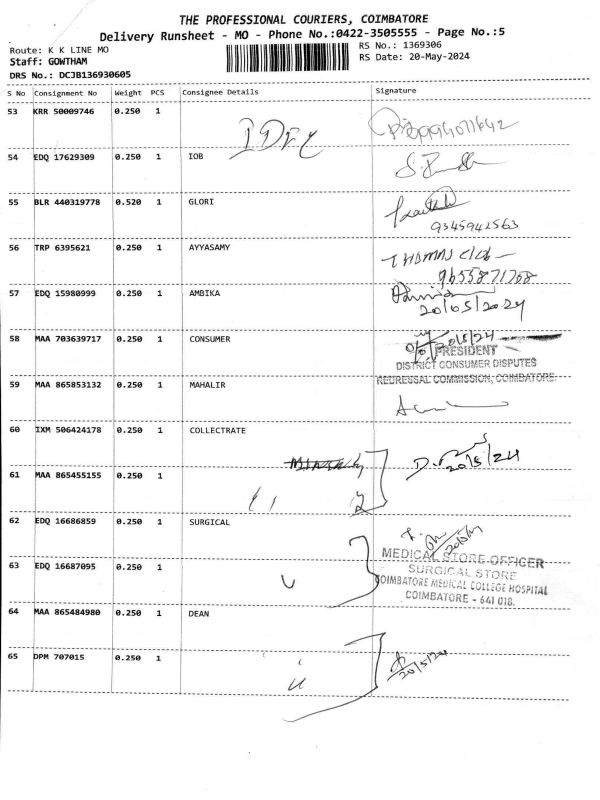 THE PROFESSIONAL COURIERS, COIMBATORE
Delivery Runsheet - MO - Phone No.:0422-3505555 - Page No.:5
Route: K K LINE MO
RS No.: 1369306
Staff: GOWTHAM
RS Date: 20-May-2024
DRS No.: DCJB136930605
S No Consignment No Weight PCS Consignee Details Signature
53 KRR 50009746 0.250 1
54 EDQ 17629309 0.250 1 IOB
55 BLR 440319778 0.520 1 GLORI
9345942563
56 TRP 6395621 0.250 1 AYYASAMY
THOMAS Club
9655871768
57 EDQ 15980999 0.250 1 AMBIKA
20/05/2024
58 MAA 703639717 0.250 1 CONSUMER
20/5/24
PRESIDENT
DISTRICT CONSUMER DISPUTES
REDRESSAL COMMISSION, COIMBATORE
59 MAA 865853132 0.250 1 MAHALIR
60 IXM 506424178 0.250 1 COLLECTRATE
20/5/24
61 MAA 865455155 0.250 1
62 EDQ 16686859 0.250 1 SURGICAL
MEDICAL STORE OFFICER
63 EDQ 16687095 0.250 1
SURGICAL STORE
COIMBATORE MEDICAL COLLEGE HOSPITAL
COIMBATORE - 641 018.
64 MAA 865484980 0.250 1 DEAN
65 DPM 707015 0.250 1
20/5/24